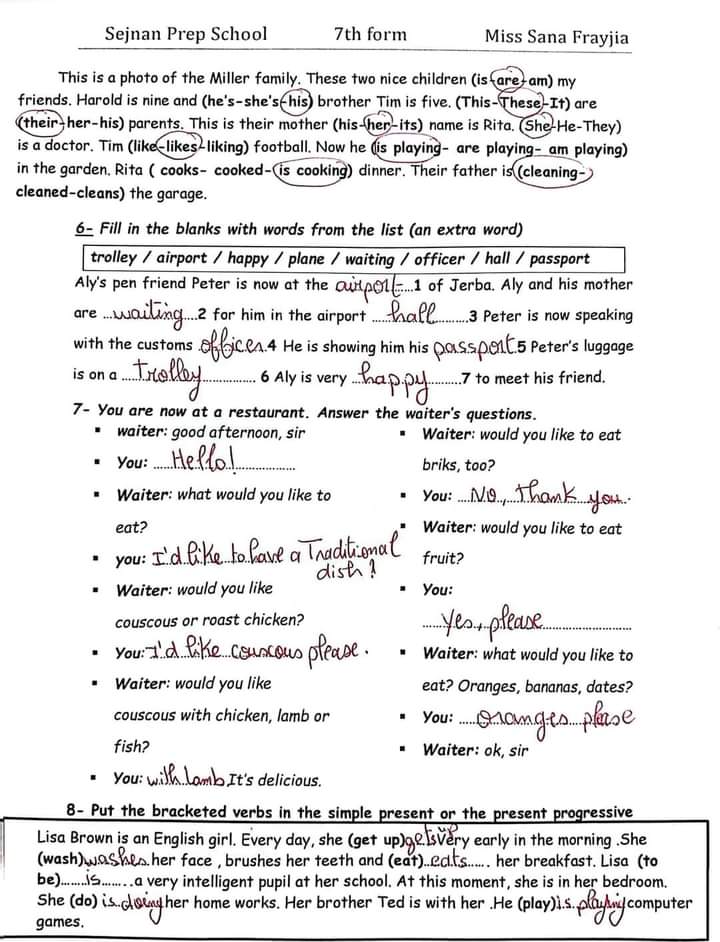 Sejnan Prep School 7th form Miss Sana Frayjia
This is a photo of the Miller family. These two nice children (is-are-am) my
friends. Harold is nine and (he's-she's-his) brother Tim is five. (This-These-It) are
(their-her-his) parents. This is their mother (his-her-its) name is Rita. (She-He-They)
is a doctor. Tim (like-likes-liking) football. Now he (is playing- are playing- am playing)
in the garden. Rita ( cooks- cooked-(is cooking) dinner. Their father is (cleaning-
cleaned-cleans) the garage.
6- Fill in the blanks with words from the list (an extra word)
trolley / airport / happy / plane / waiting / officer / hall / passport
Aly's pen friend Peter is now at the airport....1 of Jerba. Aly and his mother
are ...waiting....2 for him in the airport .....hall..........3 Peter is now speaking
with the customs officer.4 He is showing him his passport.5 Peter's luggage
is on a .....trolley............... 6 Aly is very ...happy.........7 to meet his friend.
7- You are now at a restaurant. Answer the waiter's questions.
▪ waiter: good afternoon, sir
▪ You: .....Hello!...............
▪ Waiter: what would you like to
eat?
▪ you: I'd like to have a Traditional
dish!
▪ Waiter: would you like
couscous or roast chicken?
▪ You: I'd like couscous please.
▪ Waiter: would you like
couscous with chicken, lamb or
fish?
▪ You: with lamb It's delicious.
▪ Waiter: would you like to eat
briks, too?
▪ You: ....No, thank you.
▪ Waiter: would you like to eat
fruit?
▪ You:
......Yes, please......................
▪ Waiter: what would you like to
eat? Oranges, bananas, dates?
▪ You: .....oranges please
▪ Waiter: ok, sir
8- Put the bracketed verbs in the simple present or the present progressive
Lisa Brown is an English girl. Every day, she (get up)gets up very early in the morning .She
(wash)washes her face , brushes her teeth and (eat)..eats...... her breakfast. Lisa (to
be).......is........a very intelligent pupil at her school. At this moment, she is in her bedroom.
She (do) is doing her home works. Her brother Ted is with her .He (play)is playing computer
games.